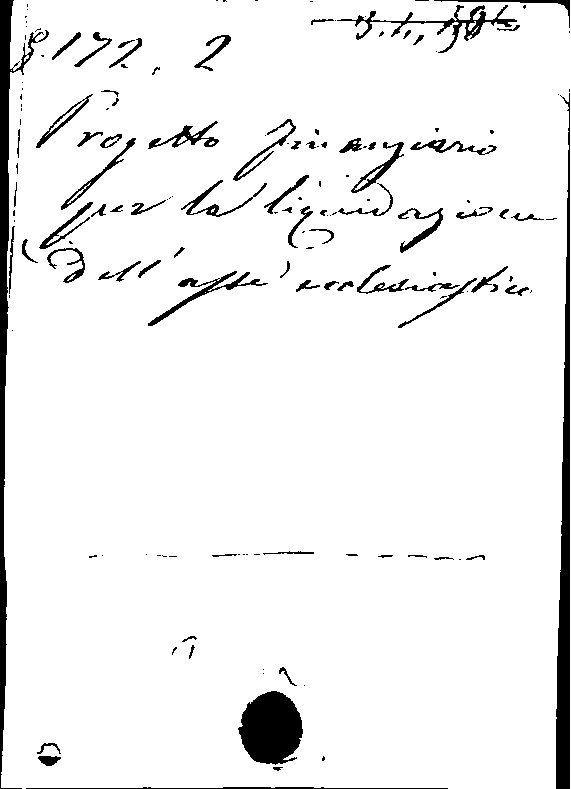 8.172.2
Progetto finanziario
per la liquidazione
dell'asse ecclesiastico